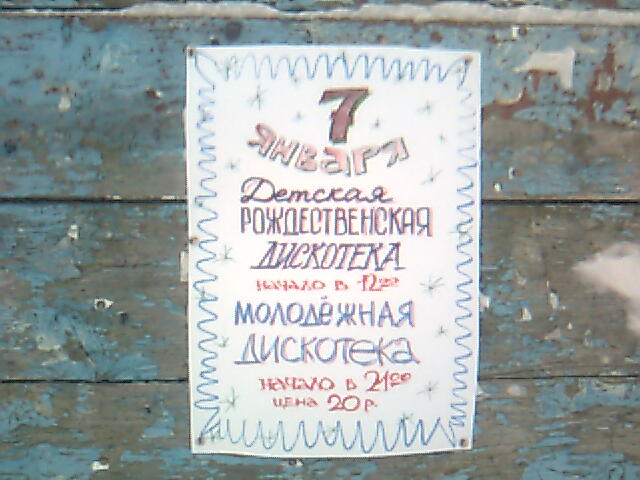 7
ЯНВАРЯ
Детская
РОЖДЕСТВЕНСКАЯ
ДИСКОТЕКА
начало в 12 00
МОЛОДЁЖНАЯ
ДИСКОТЕКА
начало в 21 00
цена 20 р.